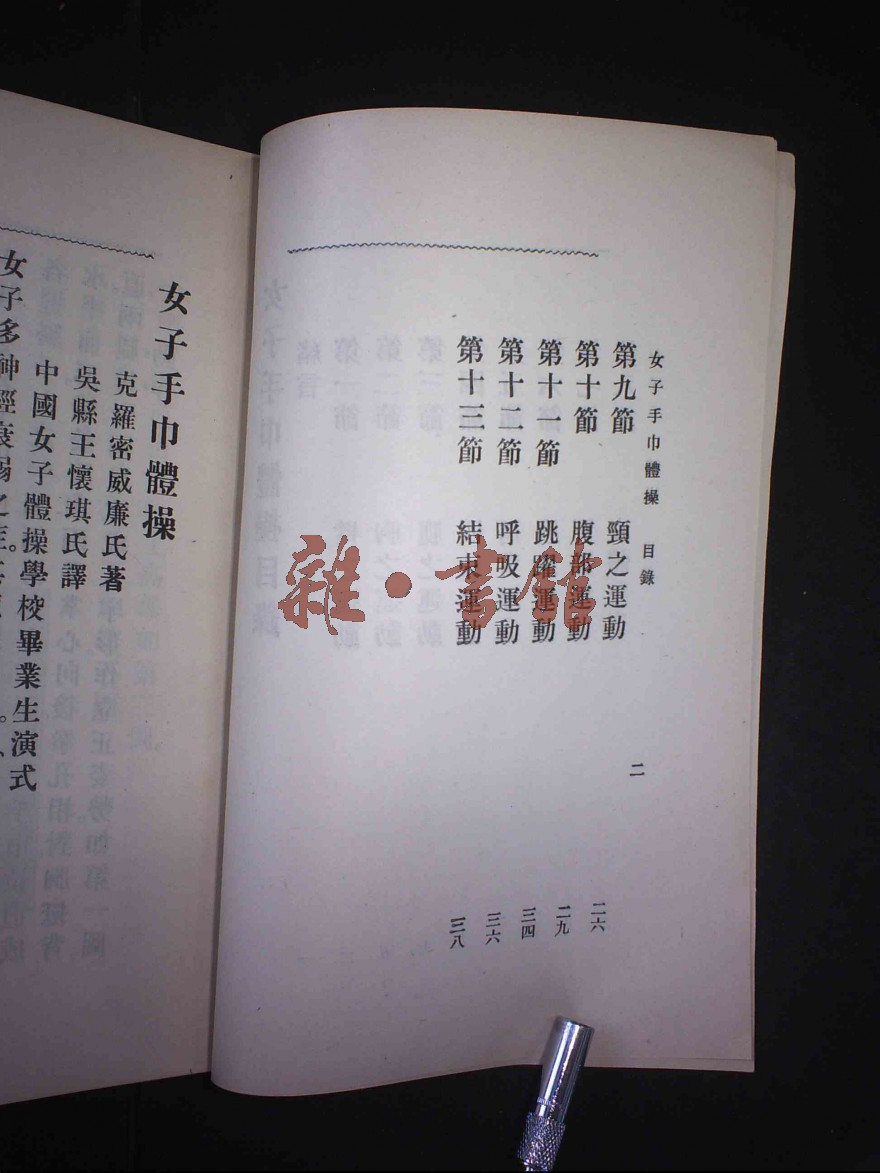 女子手巾體操 目錄 二
第九節 頸之運動 二六
第十節 腹部運動 二九
第十一節 跳躍運動 三四
第十二節 呼吸運動 三六
第十三節 結束運動 三八
雜·書館
女子手巾體操
克羅密威廉氏著
吳縣王懷琪氏譯
中國女子體操學校畢業生演式
女子多神經衰弱之症。